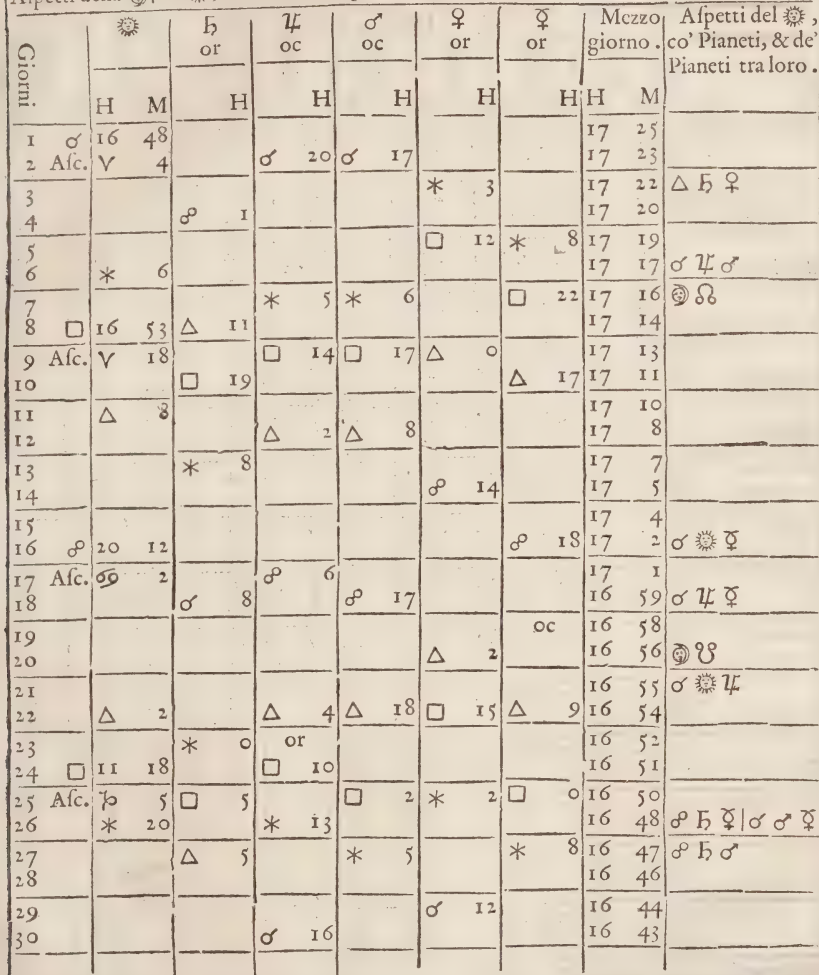 ☉ ♄ ♃ ♂ ♀ ☿ Mezzo Aſpetti del ☉,
or oc oc or or giorno. co' Pianeti, & de'
Pianeti tra loro.
Giorni
H M H H H H H H M
1 ☌ 16 48 17 25
2 Aſc. ♈ 4 ☌ 20 ☌ 17 17 23
3 ⚹ 3 17 22 △ ♄ ♀
4 ☍ 1 17 20
5 □ 12 ⚹ 8 17 19
6 ⚹ 6 17 17 ☌ ♃ ♂
7 ⚹ 5 ⚹ 6 □ 22 17 16 ☽ ☊
8 □ 16 53 △ 11 17 14
9 Aſc. ♈ 18 □ 14 □ 17 △ 0 17 13
10 □ 19 △ 17 17 11
11 △ 8 17 10
12 △ 2 △ 8 17 8
13 ⚹ 8 17 7
14 ☍ 14 17 5
15 17 4
16 ☍ 20 12 ☍ 18 17 2 ☌ ☉ ☿
17 Aſc. ♋ 2 ☍ 6 17 1
18 ☌ 8 ☍ 17 16 59 ☌ ♃ ☿
19 oc 16 58
20 △ 2 16 56 ☽ ☋
21 16 55 ☌ ☉ ♃
22 △ 2 △ 4 △ 18 □ 15 △ 9 16 54
23 ⚹ 0 or 16 52
24 □ 11 18 □ 10 16 51
25 Aſc. ♑ 5 □ 5 □ 2 ⚹ 2 □ 0 16 50
26 ⚹ 20 ⚹ 13 16 48 ☍ ♄ ☿ | ☌ ♂ ☿
27 △ 5 ⚹ 5 ⚹ 8 16 47 ☍ ♄ ♂
28 16 46
29 ☌ 12 16 44
30 ☌ 16 16 43